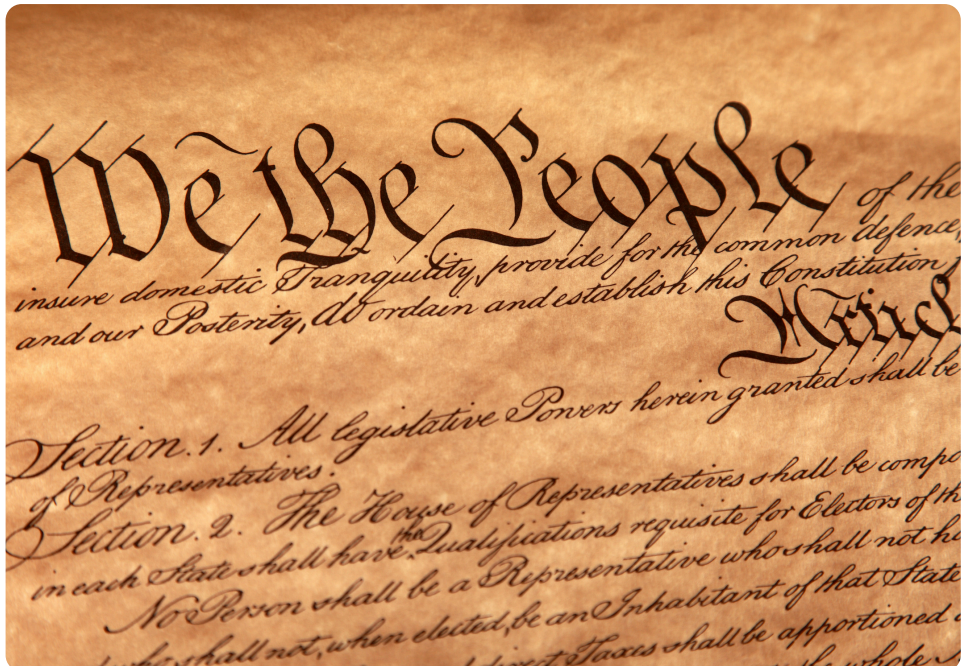 We the People of the
insure domestic Tranquility, provide for the common defence,
and our Posterity, do ordain and establish this Constitution
Articl
Section. 1. All legislative Powers herein granted shall be
of Representatives.
Section. 2. The House of Representatives shall be compo
in each State shall have the Qualifications requisite for Electors of th
No Person shall be a Representative who shall not ha
who shall not, when elected, be an Inhabitant of that State
Taxes shall be apportioned
the whole